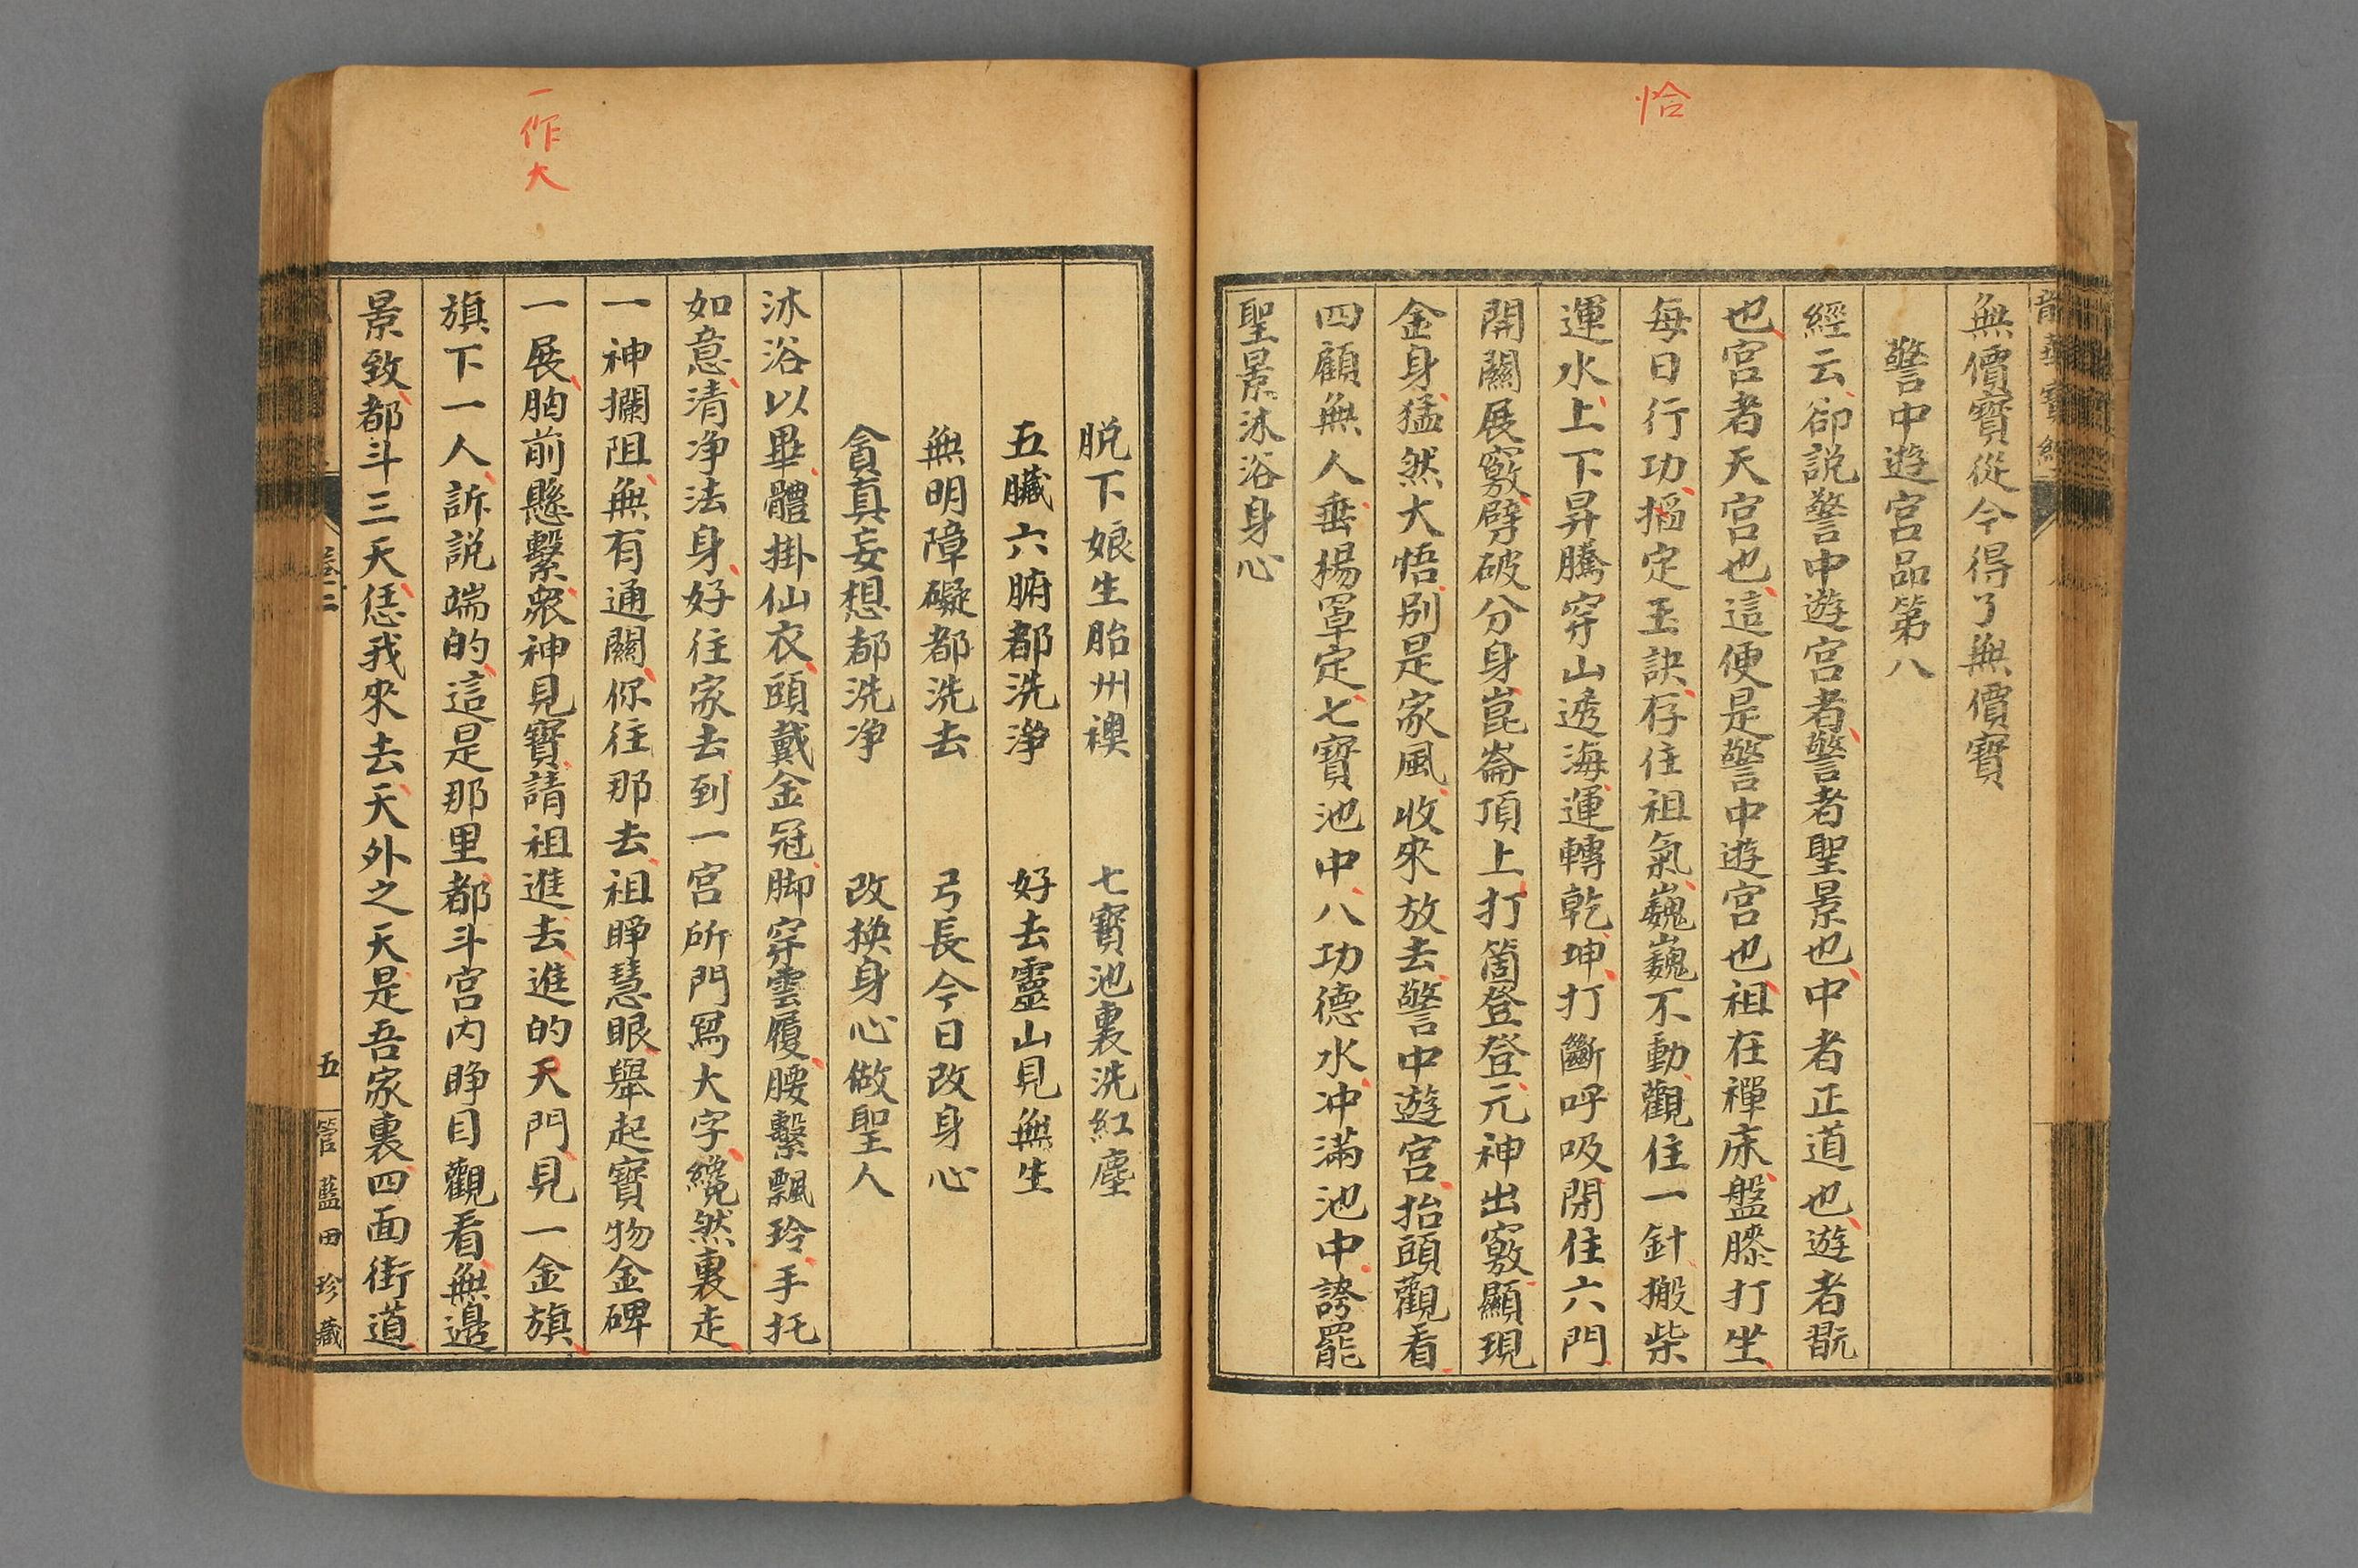 恰
無價寶從今得了無價寶
警中遊宮品第八
經云卻説警中遊宮者警者聖景也中者正道也遊者翫
也宮者天宮也這便是警中遊宮也祖在禪床盤膝打坐
每日行功搯定玉訣存住祖氣巍巍不動觀住一針搬柴
運水上下昇騰穿山透海運轉乾坤打斷呼吸閉住六門
開關展竅劈破分身崑崙頂上打箇登登元神出竅顯現
金身猛然大悟别是家風收來放去警中遊宮抬頭觀看
四顧無人垂楊罩定七寶池中八功德水冲滿池中誇罷
聖景沐浴身心
一作大
脱下娘生胎州襖 七寶池裏洗紅塵
五臟六腑都洗淨 好去靈山見無生
無明障礙都洗去 弓長今日改身心
貪真妄想都洗净 改换身心做聖人
沐浴以畢體掛仙衣頭戴金冠脚穿雲履腰繫飄玲手托
如意清净法身好往家去到一宮所門冩大字纔然裏走
一神攔阻無有通關你往那去祖睜慧眼舉起寶物金碑
一展胸前懸繫衆神見寶請祖進去進的天門見一金旗
旗下一人訴説端的這是那里都斗宮内睜目觀看無邊
景致都斗三天恁我來去天外之天是吾家裏四面街道
卷二
五
管藍田珍藏